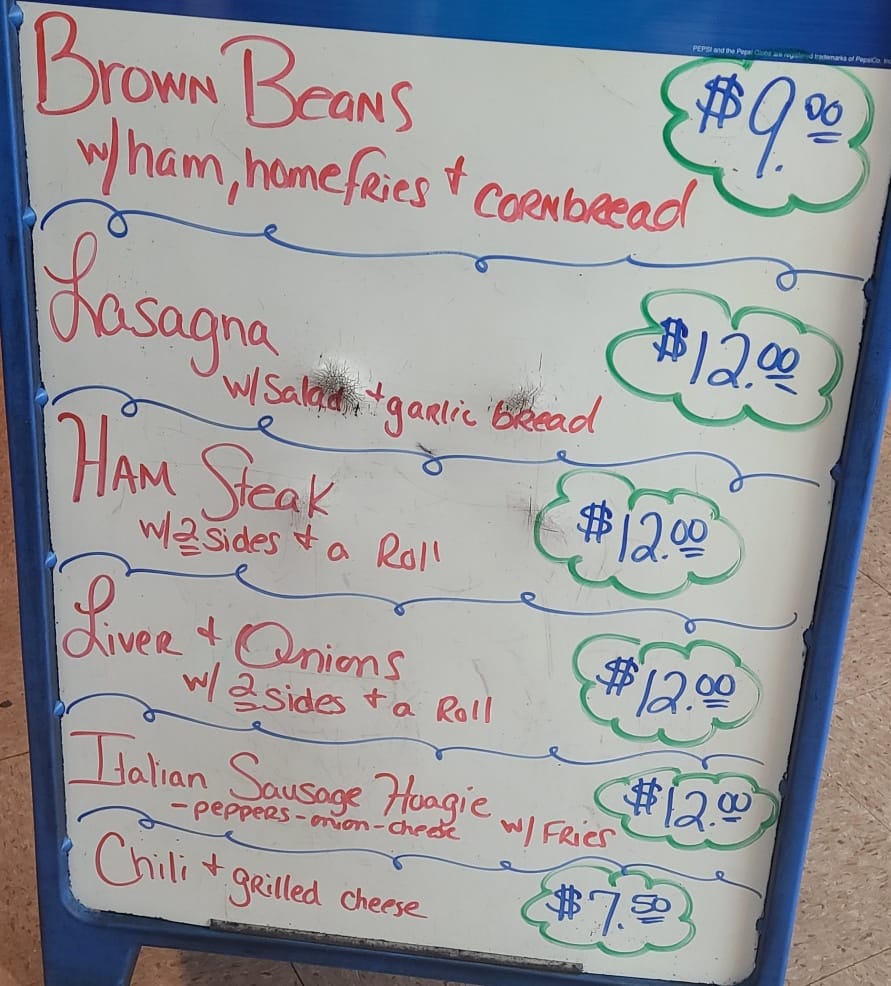 PEPSI and the Pepsi Globe are registered trademarks of PepsiCo, Inc
Brown Beans $9.00
w/ham, homefries + cornbread
Lasagna $12.00
w/Salad + garlic bread
Ham Steak $12.00
w/2 sides + a Roll
Liver + Onions $12.00
w/ 2 sides + a Roll
Italian Sausage Hoagie $12.00
-peppers-onion-cheese w/ Fries
Chili + grilled cheese $7.50